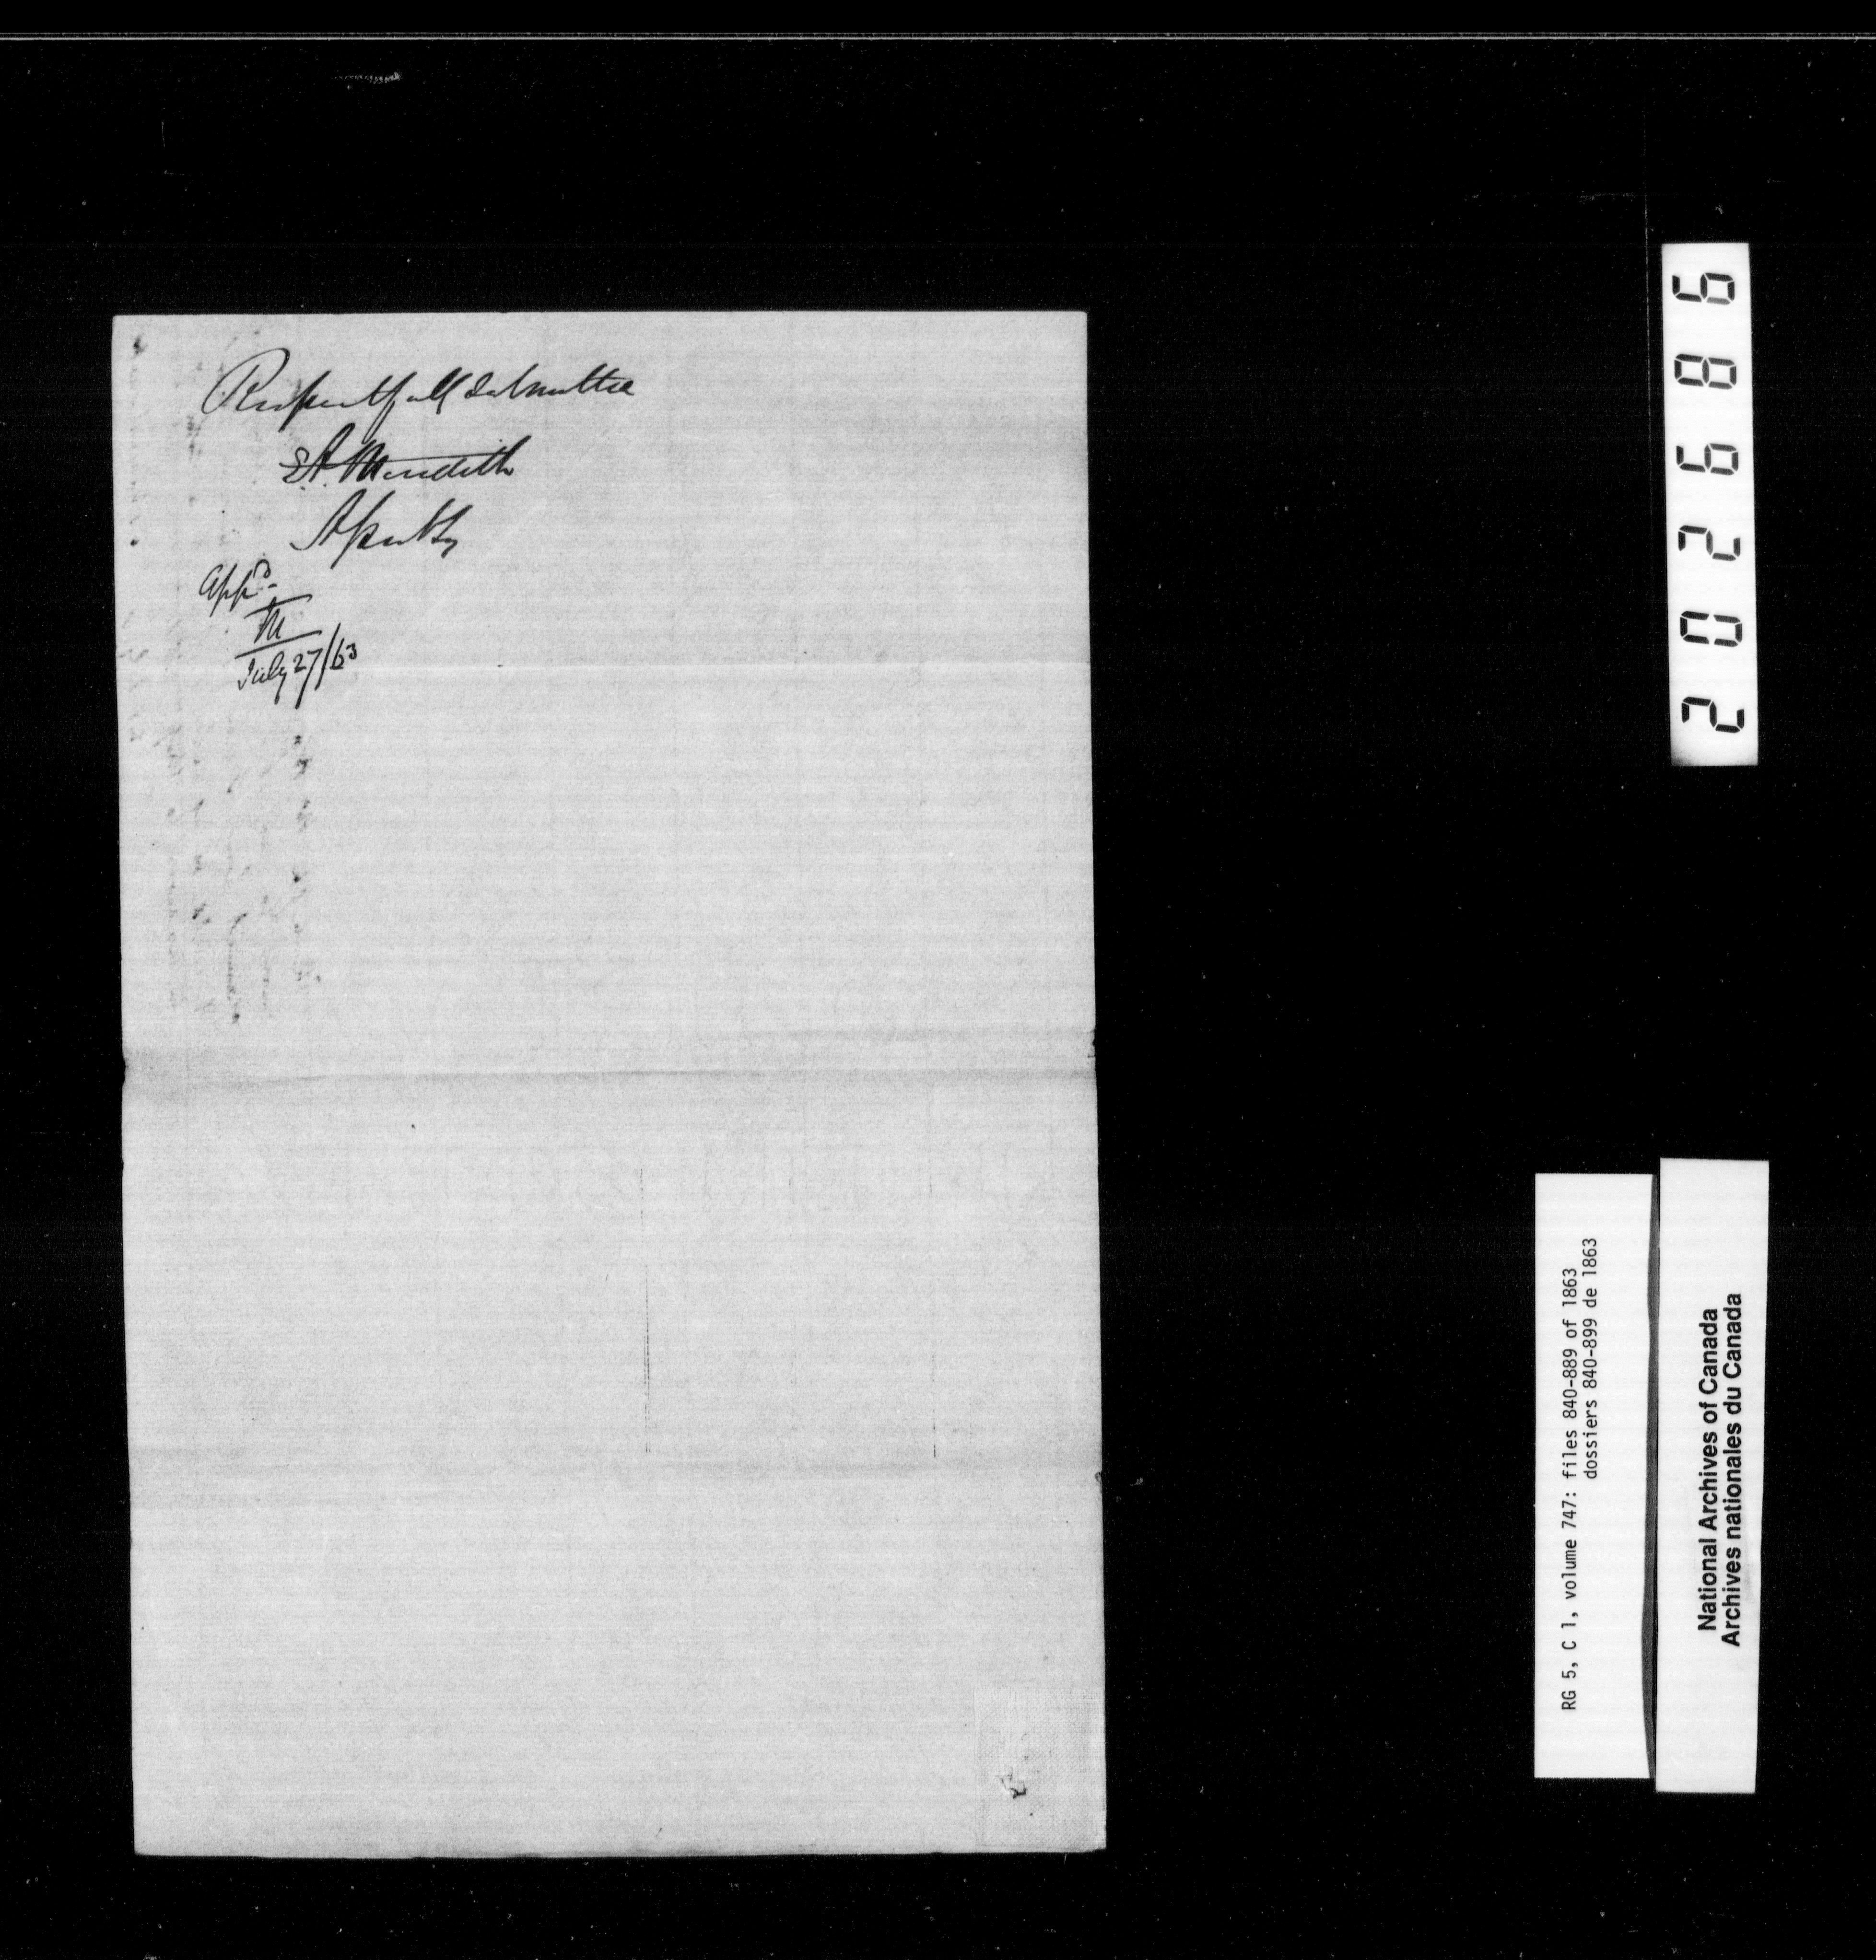 Respectfully Submitted
E.A. Meredith
Asst Secy
appd.
M
July 27/63
202686
RG 5, C 1, volume 747: files 840-889 of 1863
dossiers 840-899 de 1863
National Archives of Canada
Archives nationales du Canada